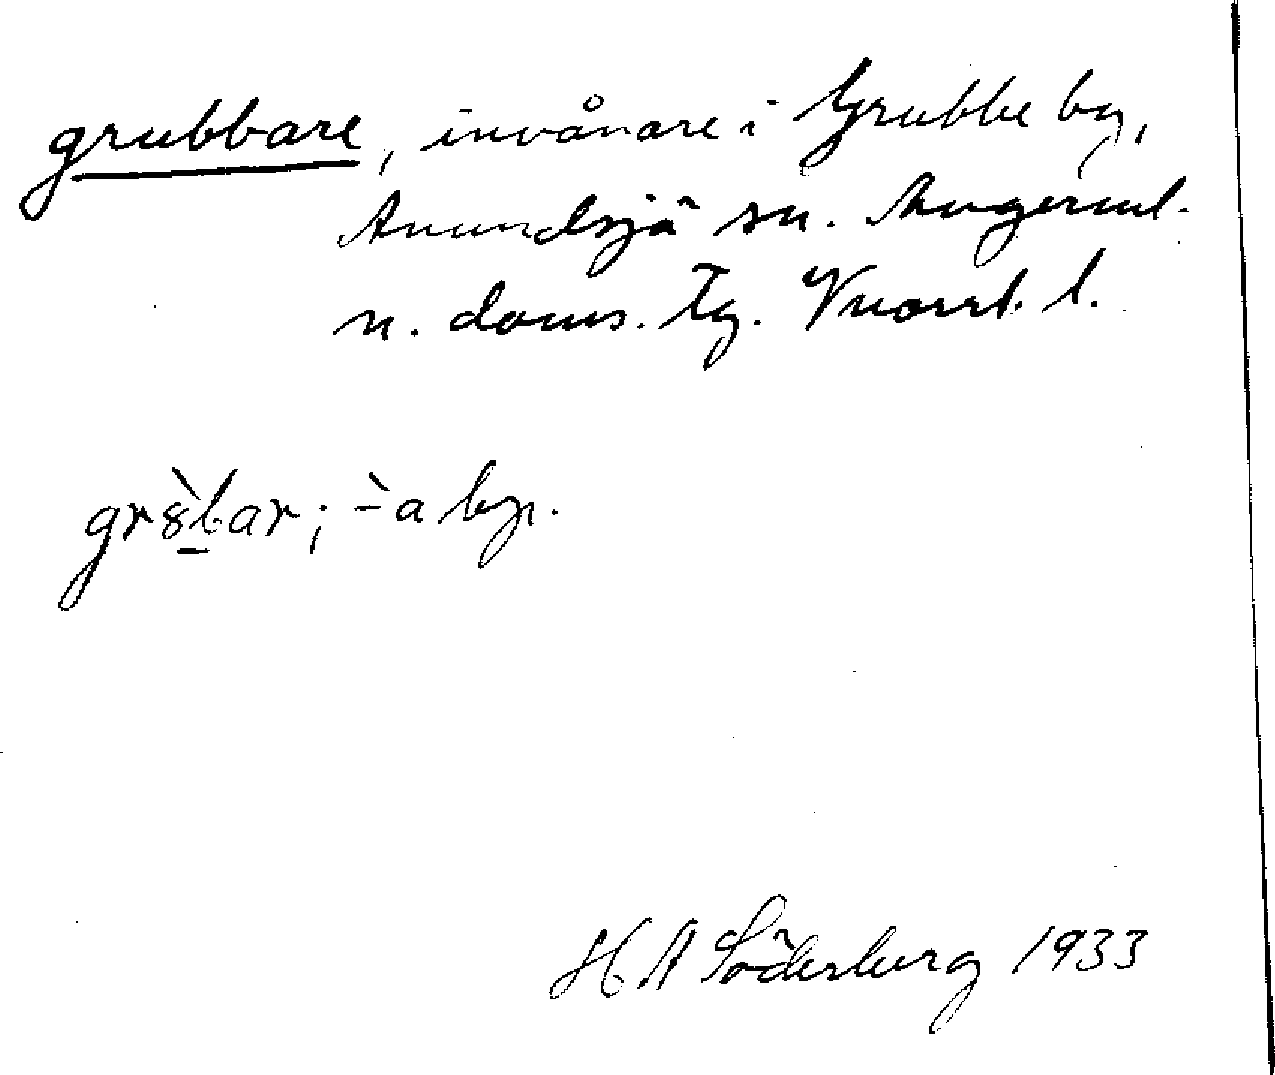 grubbare, invånare i Grubbe by,
Anundsjö sn. Ångerml.
n. doms. tg. Vnorrl. l.
gr8̀b̲ar; -̀a bp.
H A Söderberg 1933